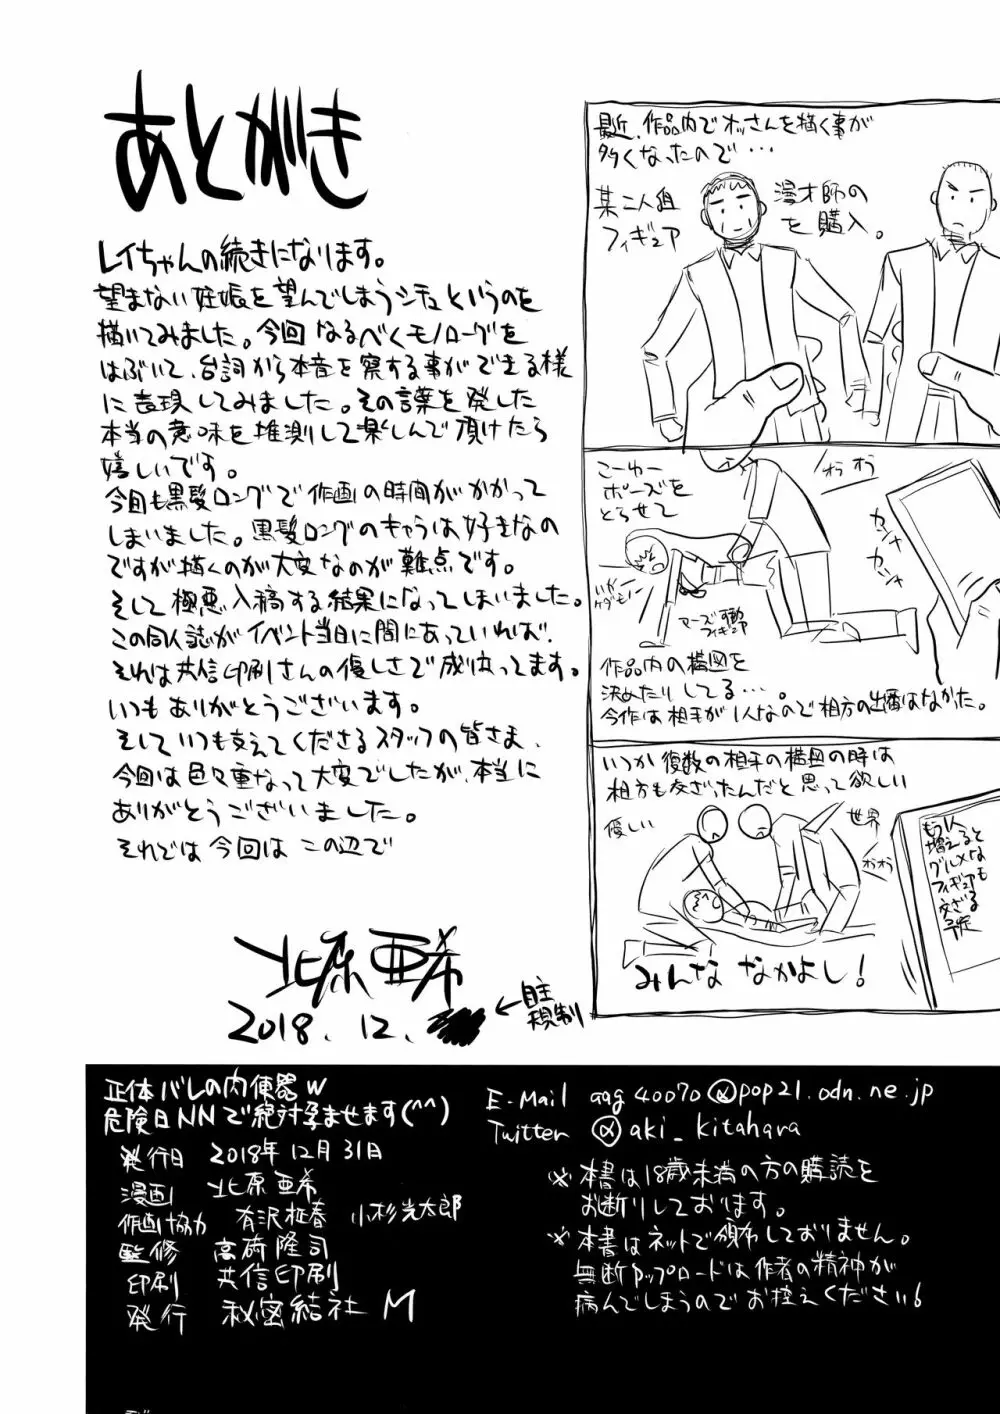 あとがき
レイちゃんの続きになります。
望まない妊娠を望んでしまうシチュというのを
描いてみました。今回なるべくモノローグを
はぶいて、台詞から本音を察する事ができる様
に表現してみました。その言葉を発した
本当の意味を推測して楽しんで頂けたら
嬉しいです。
今回も黒髪ロングで作画の時間がかかって
しまいました。黒髪ロングのキャラは好きなの
ですが描くのが大変なのが難点です。
そして極悪入稿する結果になってしまいました。
この同人誌がイベント当日に間にあっていれば、
それは共信印刷さんの優しさで成り立ってます。
いつもありがとうございます。
そしていつも支えてくださるスタッフの皆さま、
今回は色々重なって大変でしたが、本当に
ありがとうございました。
それでは今回はこの辺で
北原亜希
2018.12.
←自主
規制
最近、作品内でオッさんを描く事が
多くなったので…
某二人組
漫才師の
フィギュア
を購入。
こーゆー
ポーズを
とらせて
オラオラ
カシャ
カシャ
いやー
ケダモノー
可動
フィギュア
作品内の構図を
決めたりしてる…。
今作は相手が1人なので相方の出番はなかった。
いつか複数の相手の構図の時は
相方も交ざったんだと思って欲しい
優しい
世界
オラオラ
もう1人
増えると
グルメな
フィギュアも
交ざる
予定
みんななかよし!
正体バレの肉便器w
危険日NNで絶対孕ませます(^^)
発行日 2018年12月31日
漫画 北原亜希
作画協力 有沢 小杉光太郎
監修 高荷隆司
印刷 共信印刷
発行 秘密結社M
E-Mail aag40070@pop21.odn.ne.jp
Twitter @aki_kitahara
※本書は18歳未満の方の購読を
お断りしております。
※本書はネットで頒布しておりません。
無断アップロードは作者の精神が
病んでしまうのでお控えください!